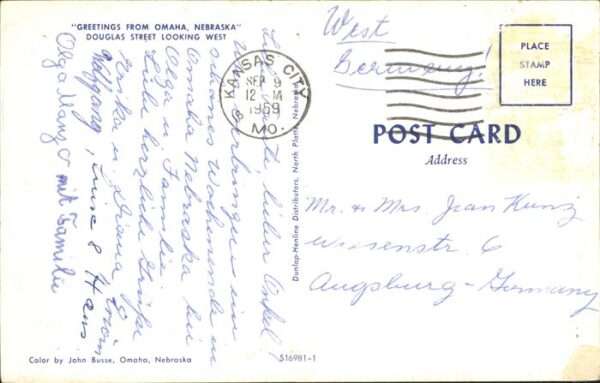 "GREETINGS FROM OMAHA, NEBRASKA"
DOUGLAS STREET LOOKING WEST
lieber Onkel!
verbringen ein
schönes Wochenende in
Omaha Nebraska bei
Olga u. Familie.
Liebe herzliche Grüße
Erika u. Diana
Wolfgang, & Hans
Olga mit Familie
Color by John Busse, Omaha, Nebraska
Dunlap-Henline Distributors, North Platte, Nebraska
S16981-1
KANSAS CITY
SEP 9
12 M
1959
MO.
West
Germany!
PLACE
STAMP
HERE
POST CARD
Address
Mr. & Mrs Jean Kunz
Wiesenstr. 6
Augsburg - Germany